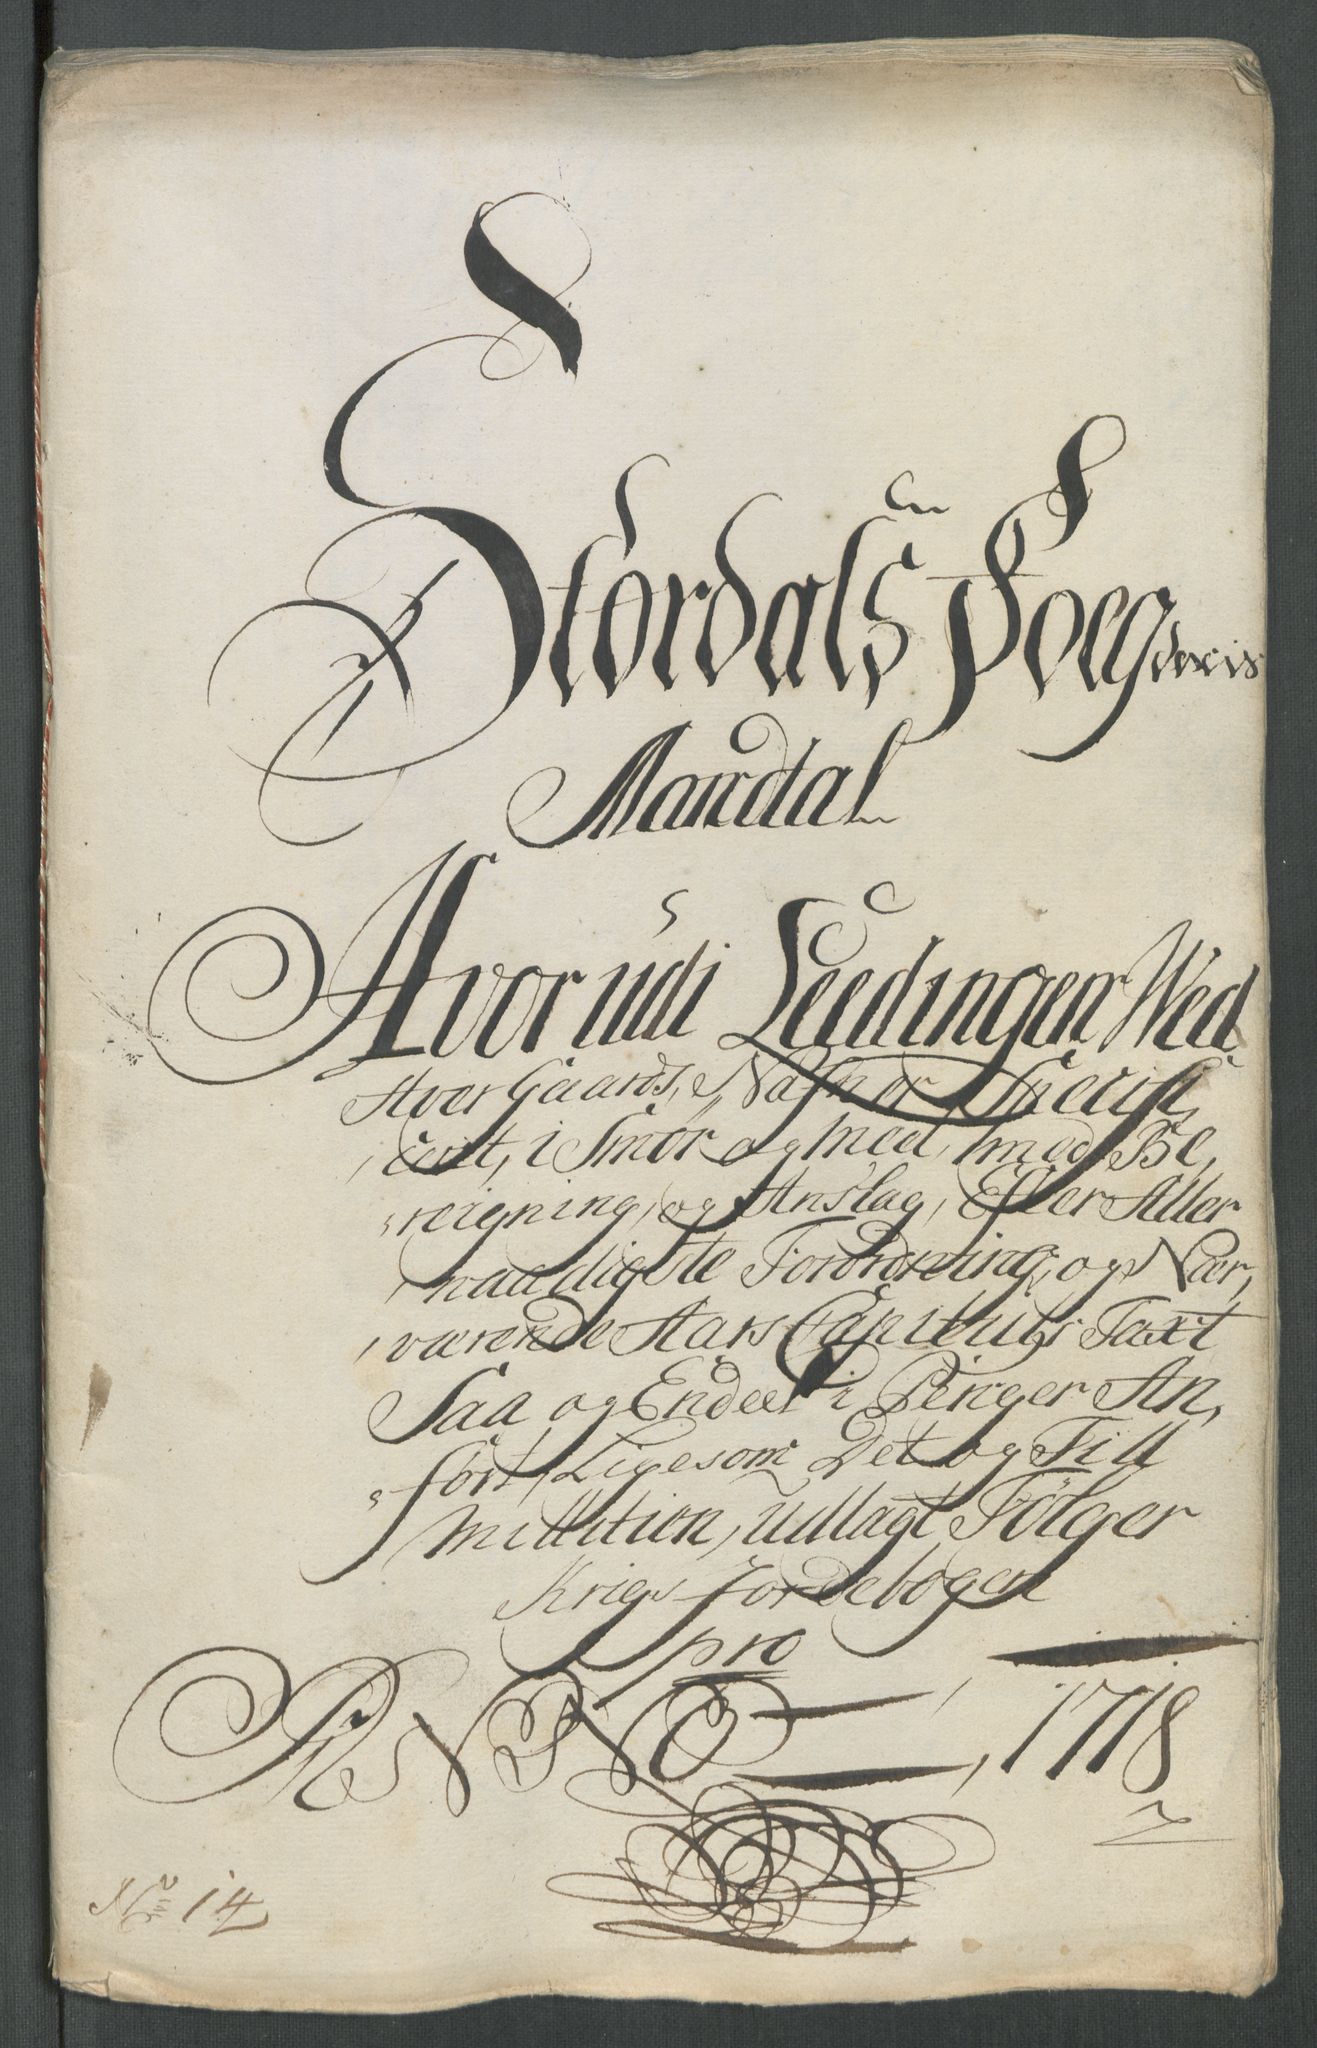 Stördals Foegderies
Mandal
Hvor udi Leedingen Wed
Hver Gaards Nafn er Specifi
cert, i Smör og Meel, med Be,
reigning, og Anslag, Efter Aller
naadigste Forordning, og Nær,
værende Aars Capituls Taxt
Saa og Endeel i Penger An,
fört, Ligesom Det og Till
Millition, udlagt Fölger
Krigs Jordebogen
pro
ANNO 1718
No 14